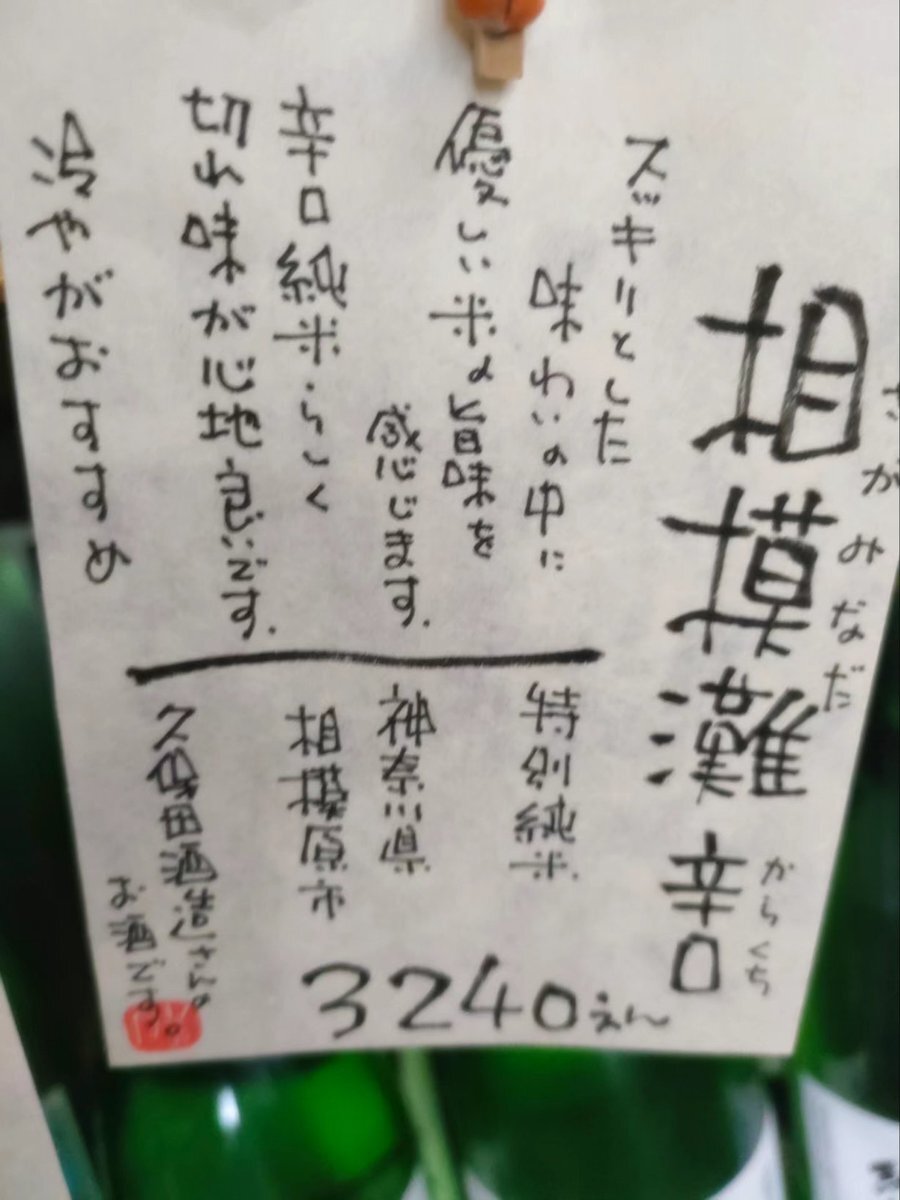 相模灘 辛口
さがみなだ
からくち
スッキリとした
味わいの中に
優しい米の旨味を
感じます.
辛口純米らしく
切れ味が心地良いです.
冷やがおすすめ
特別純米.
神奈川県
相模原市
久保田酒造さんの
お酒です。
3240えん